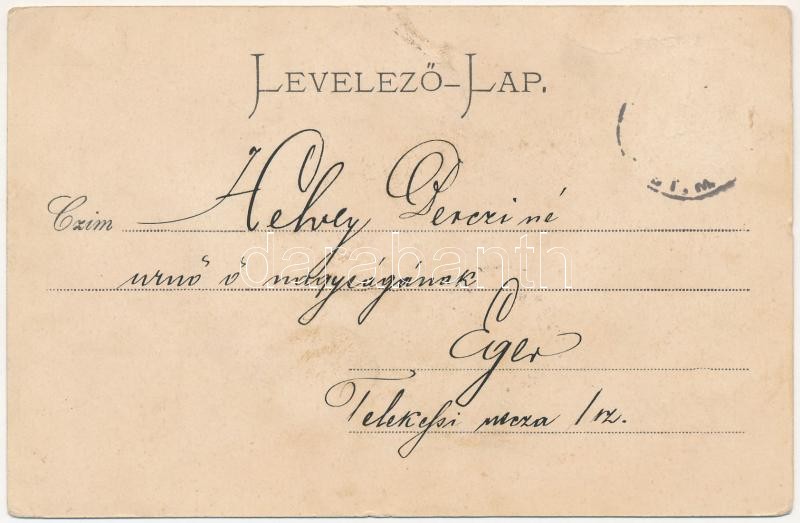 LEVELEZŐ-LAP.
Czim Helvey Perczi né
urnő ő nagyságának
darabanth
Eger
Telekessi utcza 1 sz.